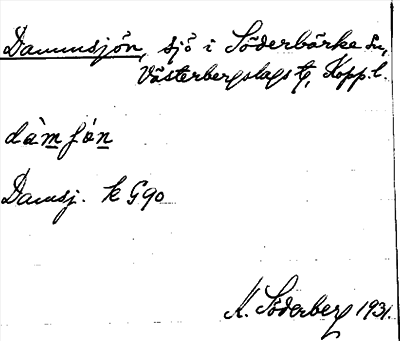 Dammsjön, sjö i Söderbärke sn,
Västerbergslags tg, Kopp. l.
dàmʃön
Damsj. k G90
K. Söderberg 1931.